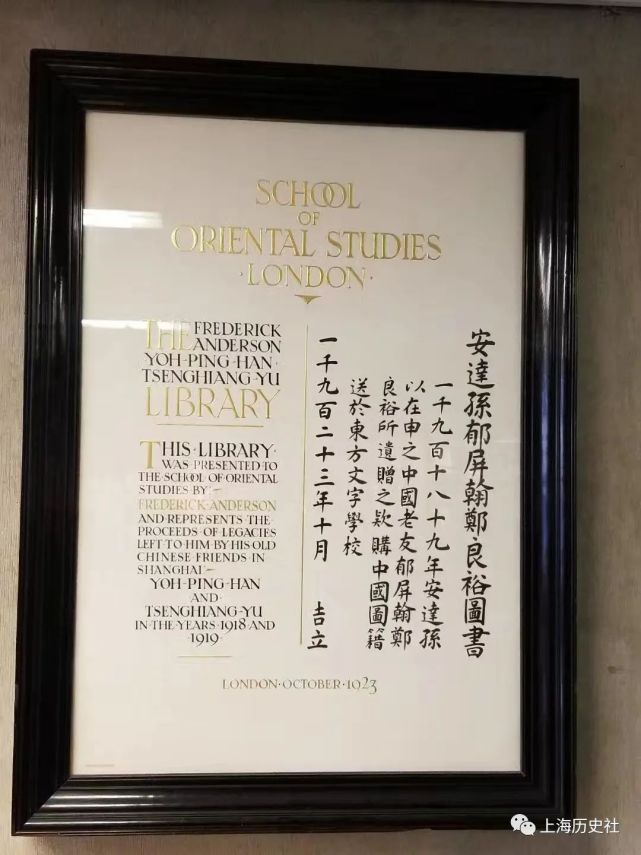 SCHOOL
OF
ORIENTAL STUDIES
·LONDON·
THE FREDERICK
ANDERSON
YOH·PING·HAN·
TSENGHIANG·YU
LIBRARY
THIS·LIBRARY·
WAS·PRESENTED·TO
THE·SCHOOL·OF·ORIENTAL
STUDIES·BY—
FREDERICK·ANDERSON
AND·REPRESENTS·THE·
PROCEEDS·OF·LEGACIES
LEFT·TO·HIM·BY·HIS·OLD
CHINESE·FRIENDS·IN
SHANGHAI—
YOH·PING·HAN
AND
TSENGHIANG·YU
IN·THE·YEARS·1918·AND
1919·
安達孫郁屏翰鄭良裕圖書
一千九百十八十九年安達孫
以在申之中國老友郁屏翰鄭
良裕所遺贈之欵購中國圖籍
送於東方文字學校
一千九百二十三年十月 吉立
LONDON·OCTOBER·1923
上海历史社